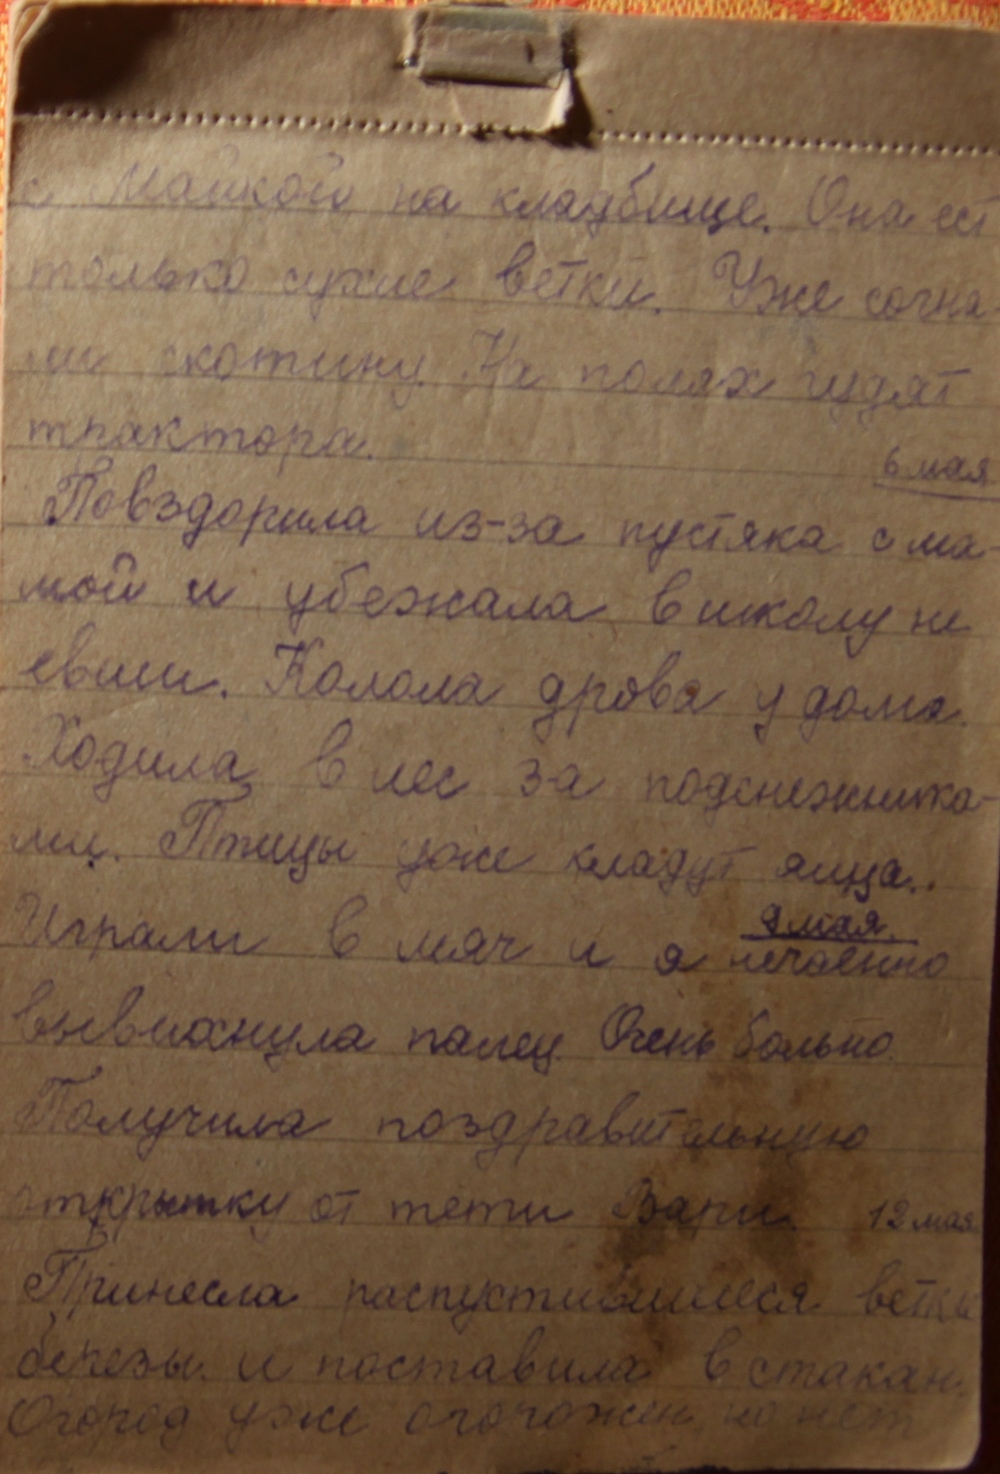 с Майкой на кладбище. Она ест
только сухие ветки. Уже согна-
ли скотину. На полях гудят
трактора.
6 мая
Повздорила из-за пустяка с ма-
мой и убежала в школу не
евши. Колола дрова у дома.
Ходила в лес за подснежника-
ми. Птицы уже кладут яйца..
9 мая.
Играли в мяч и я нечаенно
вывихнула палец. Очень больно.
Получила поздравительную
открытку от тети Вари. 12 мая
Принесла распустившиеся ветки
березы и поставила в стакан.
Огород уже огорожен, но нет